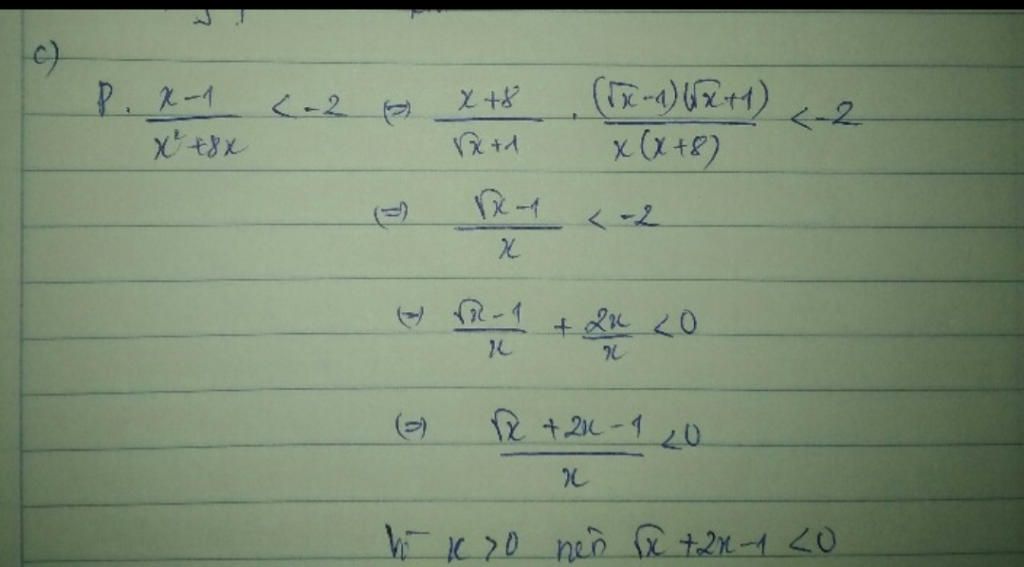 c)
P. \frac{x-1}{x²+8x} < -2 (=) \frac{x+8}{\sqrt{x}+1} . \frac{(\sqrt{x}-1)(\sqrt{x}+1)}{x(x+8)} < -2
(=) \frac{\sqrt{x}-1}{x} < -2
(=) \frac{\sqrt{x}-1}{x} + \frac{2x}{x} < 0
(=) \frac{\sqrt{x}+2x-1}{x} < 0
Vì x > 0 nên \sqrt{x}+2x-1 < 0